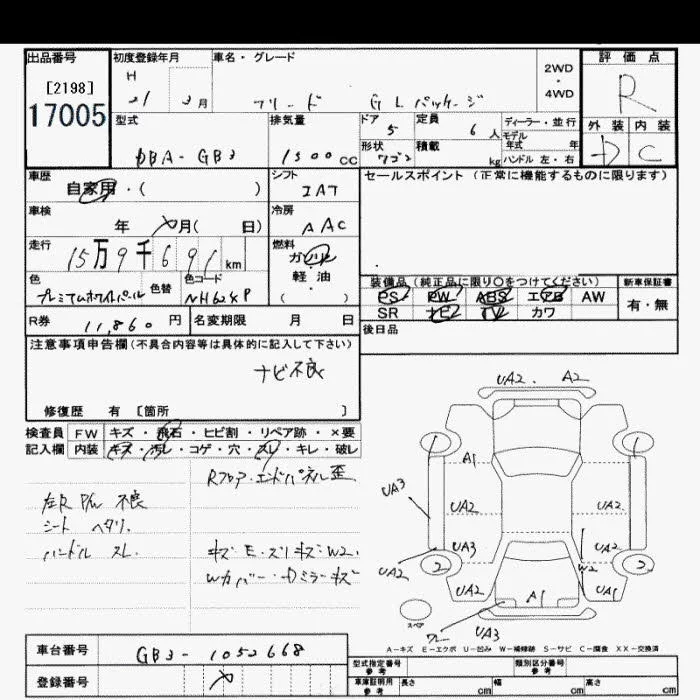 出品番号 初度登録年月 車名・グレード 2WD・4WD 評価点
[2198] H 21 2月 フリード GLパッケージ R
17005
型式 排気量 ドア 5 定員 6人 ディーラー・並行 外装 内装
DBA-GB3 1500CC 形状 ワゴン 積載 kg モデル年式 年 D C
ハンドル 左・右
車歴 自家用・( ) シフト IAT セールスポイント (正常に機能するものに限ります)
車検 年 月( 日) 冷房 AAC
走行 15万9千691km 燃料 ガソリン 軽・油 ( )
色 プレミアムホワイトパール 色替 色コード NH624P
装備品 (純正品に限り○をつけてください) 新車保証書
PS PW ABS エアB AW 有・無
SR ナビ TV カワ
R券 11,860円 名変期限 月 日 後日品
注意事項申告欄(不具合内容等は具体的に記入して下さい)
ナビ不良
修復歴 有 [箇所 ]
検査員 FW キズ・飛石・ヒビ割・リペア跡・×要
記入欄 内装 キズ・汚レ・コゲ・穴・スレ・キレ・破レ
Rフロア・エンドパネル歪
左R P/W 不良
シート ヘタリ
ハンドル スレ キズ E・スリキズ W2
Wカバー・Dミラーキズ
UA2 . A2
A1
UA3 UA2 UA2
UA3 UA2
UA2 W2
UA2 A1 UA1
UA3
スペア
A-キズ E-エクボ U-凹み W-補修跡 S-サビ C-腐食 XX-交換済
車台番号 GB3-1052668
登録番号
型式指定番号 参考 類別区分番号 参考
車庫証明用 参考 長さ cm 幅 cm 高さ cm